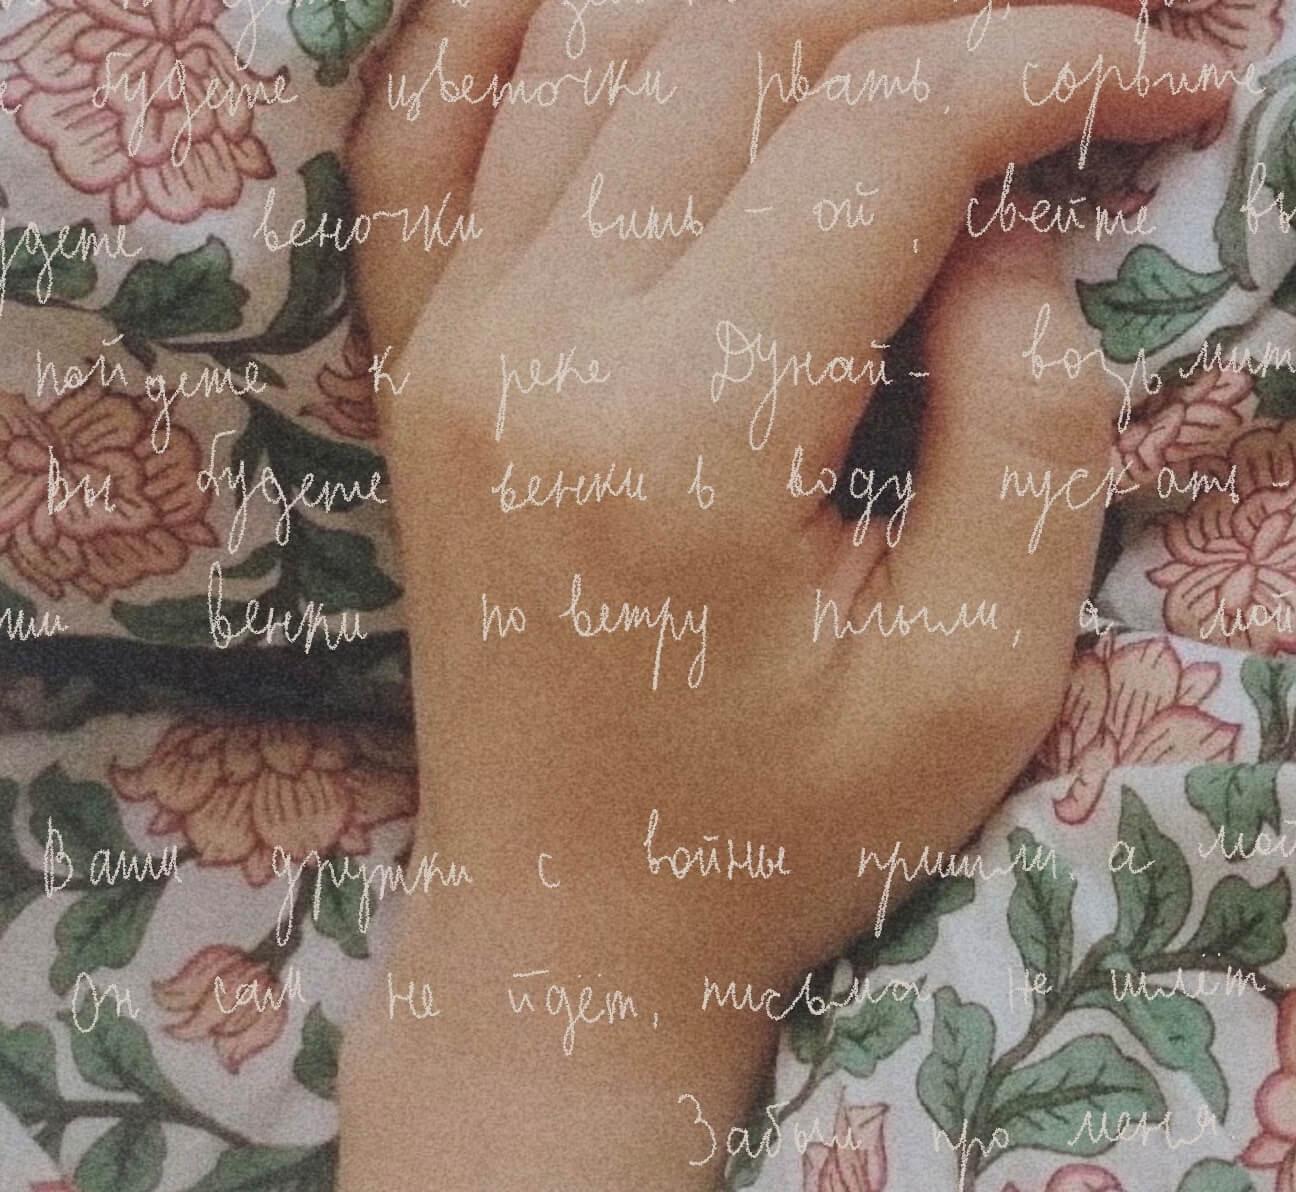 будете цветочки рвать, сорвите
будете веночки вить - ой, свейте вы
пойдете к реке Дунай - возьмит
Вы будете венки в воду пускать -
венки по ветру плыли, а мой
Ваши дружки с войны пришли, а мой
Он сам не йдёт, письма не шлёт.
Забыл про меня.